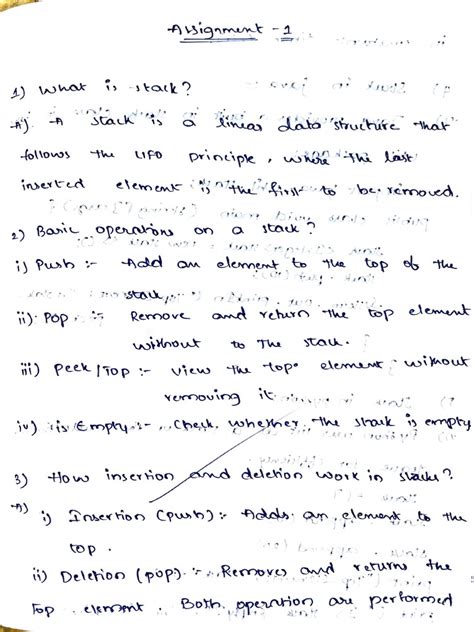 Assignment - 1
1) What is stack?
A) A stack is a linear data structure that
follows the LIFO principle, where the last
inserted element is the first to be removed.
2) Basic operations on a stack?
i) Push :- Add an element to the top of the
stack.
ii) Pop :- Remove and return the top element
without to the stack.
iii) Peek / Top :- View the top element without
removing it.
iv) is Empty :- Check whether the stack is empty
3) How insertion and deletion work in stacks?
A) i) Insertion (push) :- Adds an element to the
top.
ii) Deletion (pop) :- Removes and returns the
top element. Both operation are performed